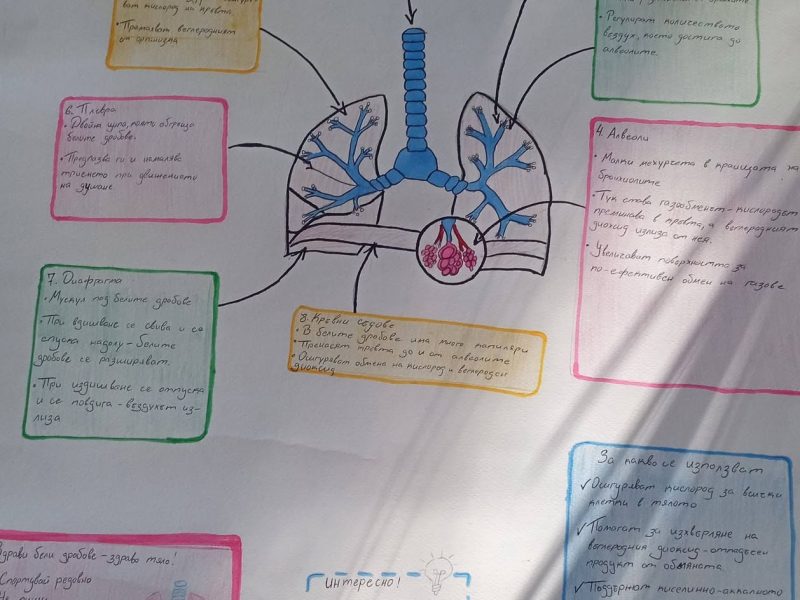 ват кислород на кръвта.
• Премахват въглеродният
от организма
• Регулират количеството
въздух, което достига до
алвеолите.
6. Плевра
• Двойна ципа, която обгръща
белите дробове.
• Предпазва ги и намалява
триенето при движението
на дишане
4. Алвеоли
• Малки мехурчета в краищата на
бронхиолите
• Тук става газообменът - кислородът
преминава в кръвта, а въглеродният
диоксид излиза от нея.
• Увеличават повърхността за
по-ефективен обмен на газове
7. Диафрагма
• Мускул под белите дробове
• При вдишване се свива и се
спуска надолу - белите
дробове се разширяват.
• При издишване се отпуска
и се повдига - въздухът из-
лиза
8. Кръвни съдове
• В белите дробове има много капиляри
• Пренасят кръвта до и от алвеолите
• Осигуряват обмена на кислород и въглероден
диоксид
За какво се използват
✓ Осигуряват кислород за всички
клетки в тялото
✓ Помагат за изхвърляне на
въглеродния диоксид - отпадъчен
продукт от обмяната
✓ Поддържат киселинно-алкалното
Здрави бели дробове - здраво тяло!
Спортувай редовно
Не пуши
Интересно!